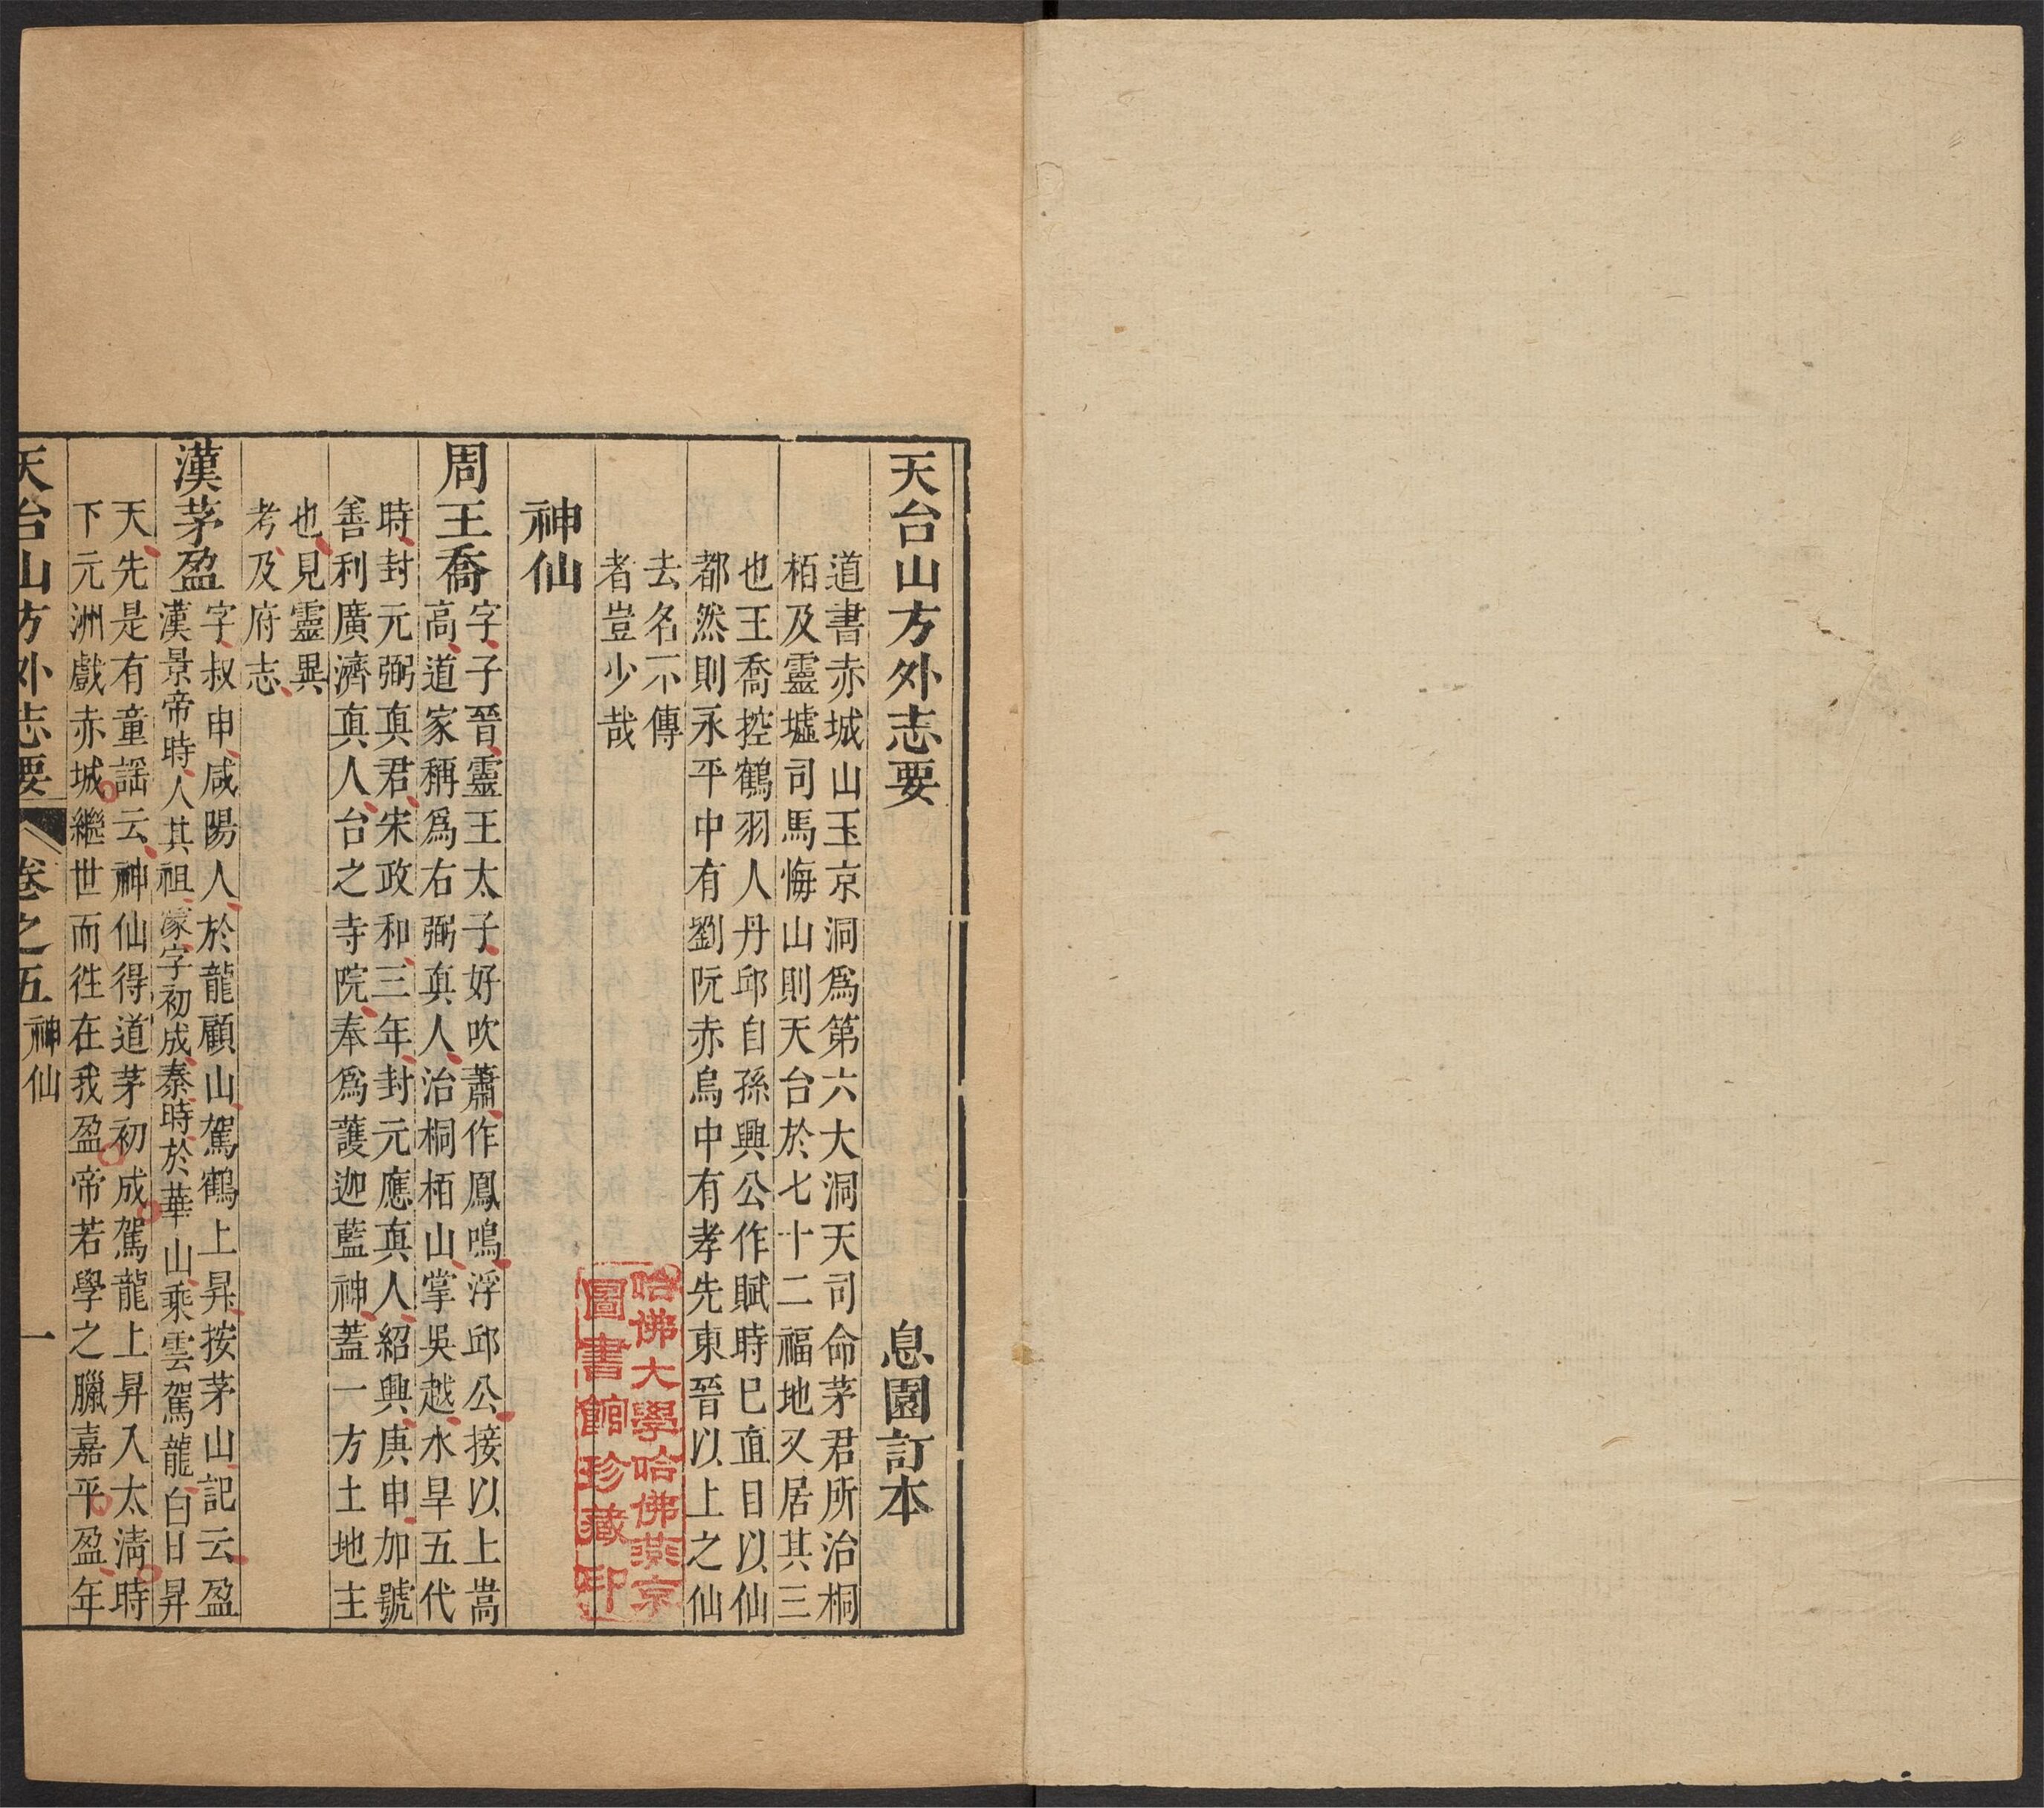 天台山方外志要
息園訂本
道書赤城山玉京洞爲第六大洞天司命茅君所治桐
栢及靈墟司馬悔山則天台於七十二福地又居其三
也王喬控鶴羽人丹邱自孫興公作賦時已直目以仙
都然則永平中有劉阮赤烏中有孝先東晉以上之仙
去名不傳
者豈少哉
神仙
周王喬
字子晉靈王太子好吹蕭作鳳鳴浮邱公接以上嵩
高道家稱爲右弼真人治桐栢山掌吳越水旱五代
時封元弼真君宋政和三年封元應真人紹興庚申加號
善利廣濟真人台之寺院奉爲護迦藍神蓋一方土地主
也見靈異
考及府志
漢茅盈
字叔申咸陽人於龍顧山駕鶴上昇按茅山記云盈
漢景帝時人其祖濛字初成秦時於華山乘雲駕龍白日昇
天先是有童謡云神仙得道茅初成駕龍上昇入太清時
下元洲戲赤城繼世而徃在我盈帝若學之臘嘉平盈年
天台山方外志要
卷之五
神仙
一
哈佛大學哈佛燕京
圖書館珍藏印